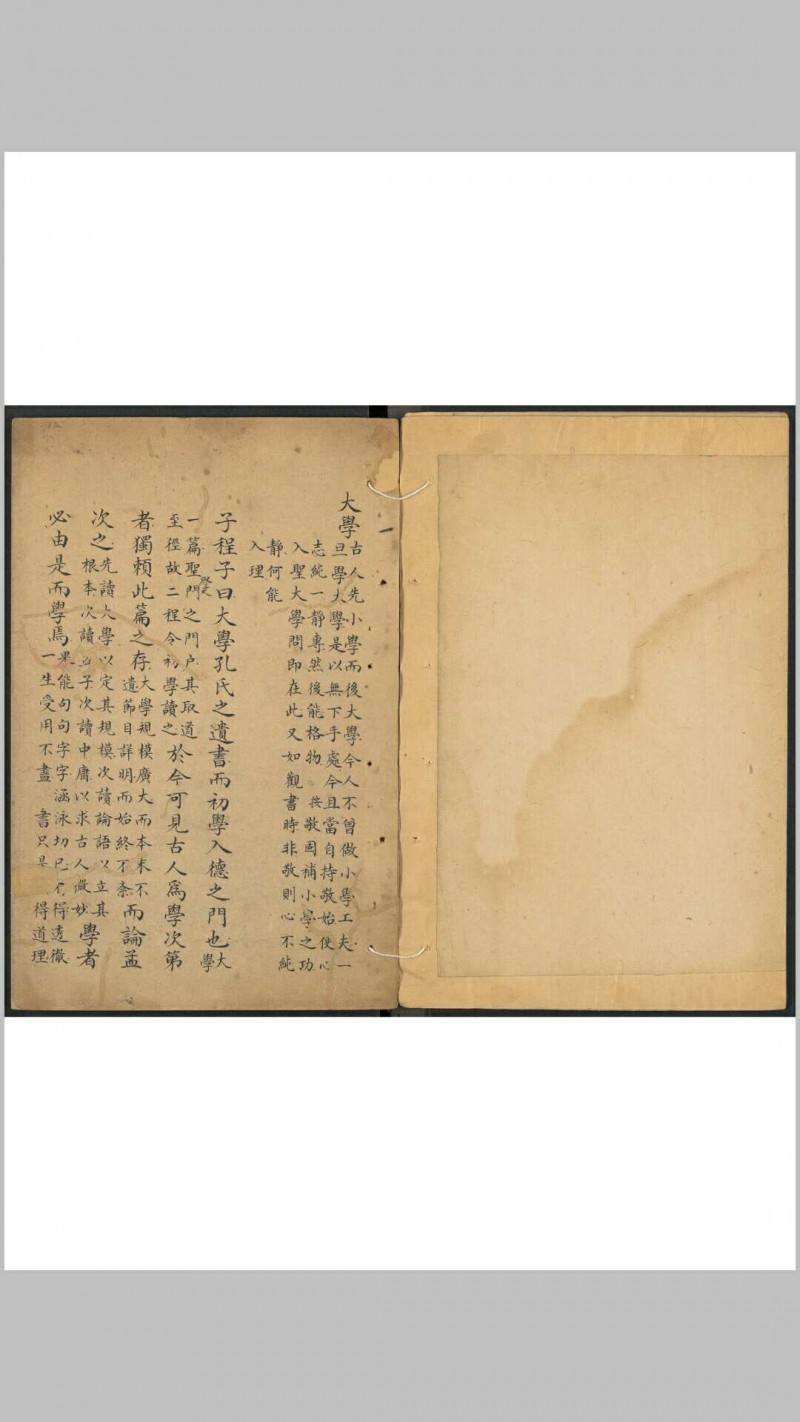 大學
古人先小學而後大學今人不曾做小學工夫一
旦學大學是以無下手處今且當自持敬始使心
志純一靜專然後能格物 按敬固補小學之功
入聖大學問即在此又如觀書時非敬則心不純
靜何能
入理
子程子曰大學孔氏之遺書而初學入德之門也大學
一篇聖門之門户其取道
至徑故二程令初學讀之
於今可見古人爲學次第
者獨賴此篇之存
大學規模廣大而本末不
遺節目詳明而始終不紊
而論孟
次之
先讀大學以定其規模次讀論語以立其
根本次讀孟子次讀中庸以求古人微妙
學者
必由是而學焉
果能句句字字涵泳切己看得透徹
一生受用不盡 書只是 得道理